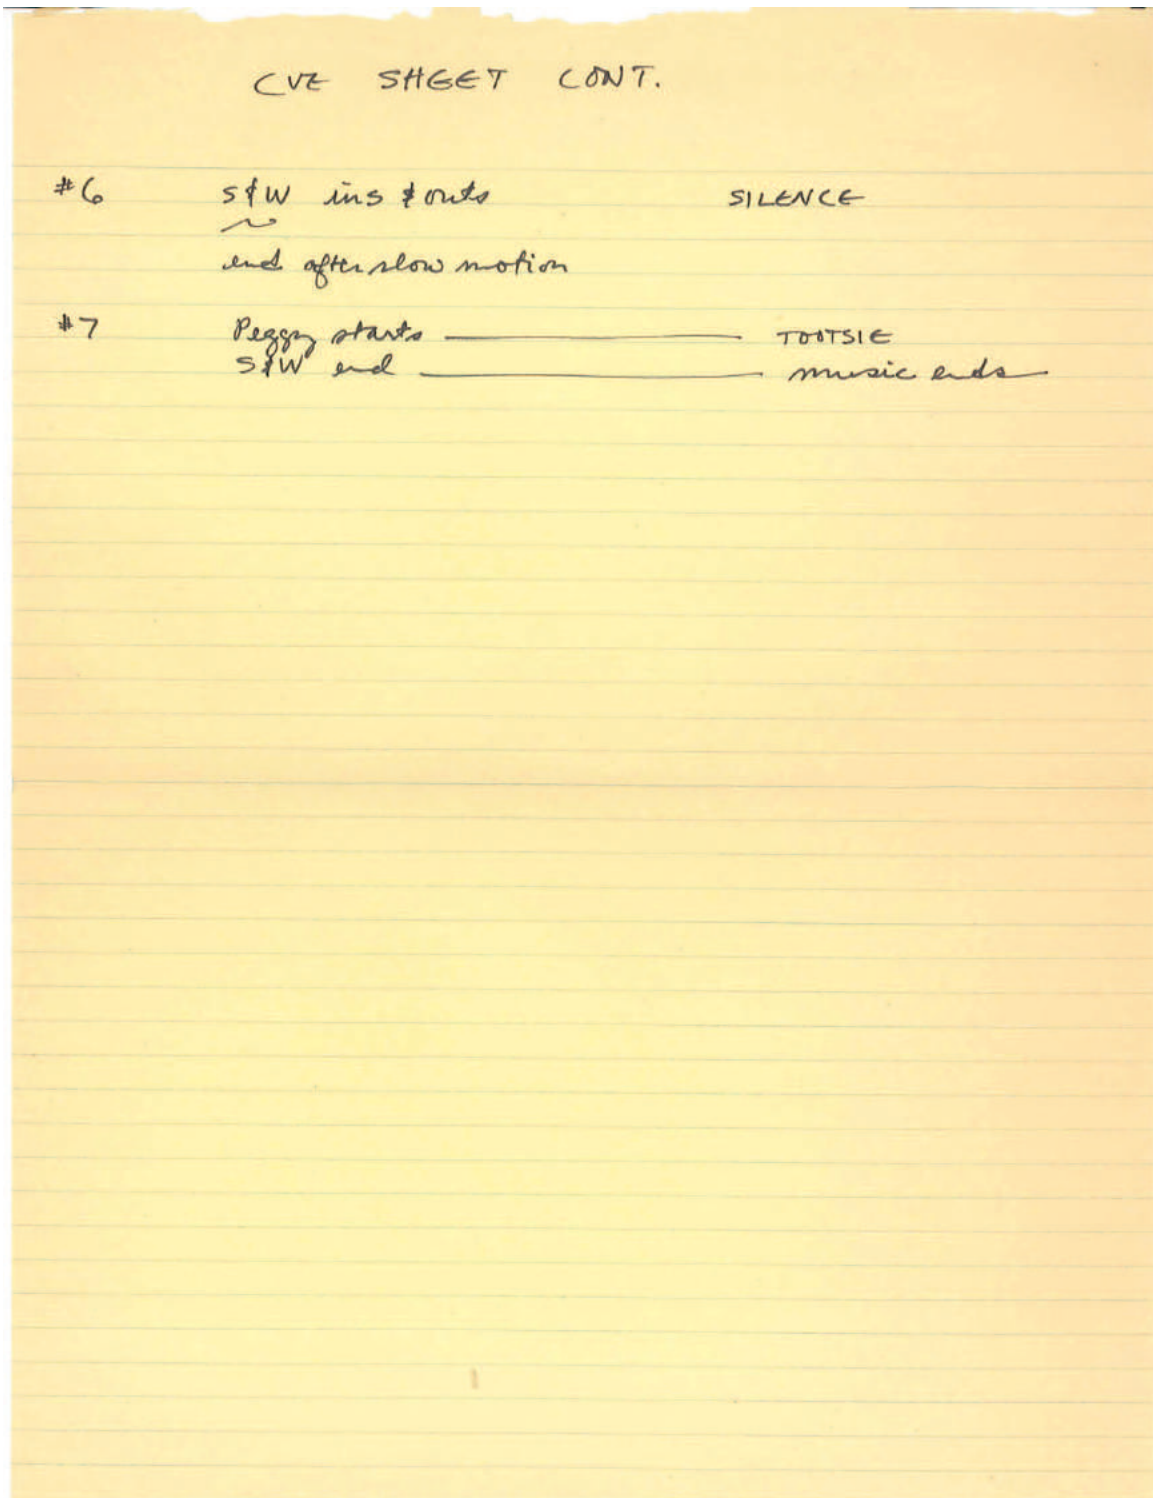 CUE SHEET CONT.
#6 S&W ins & outs SILENCE
end after slow motion
#7 Peggy starts TOOTSIE
S&W end music ends